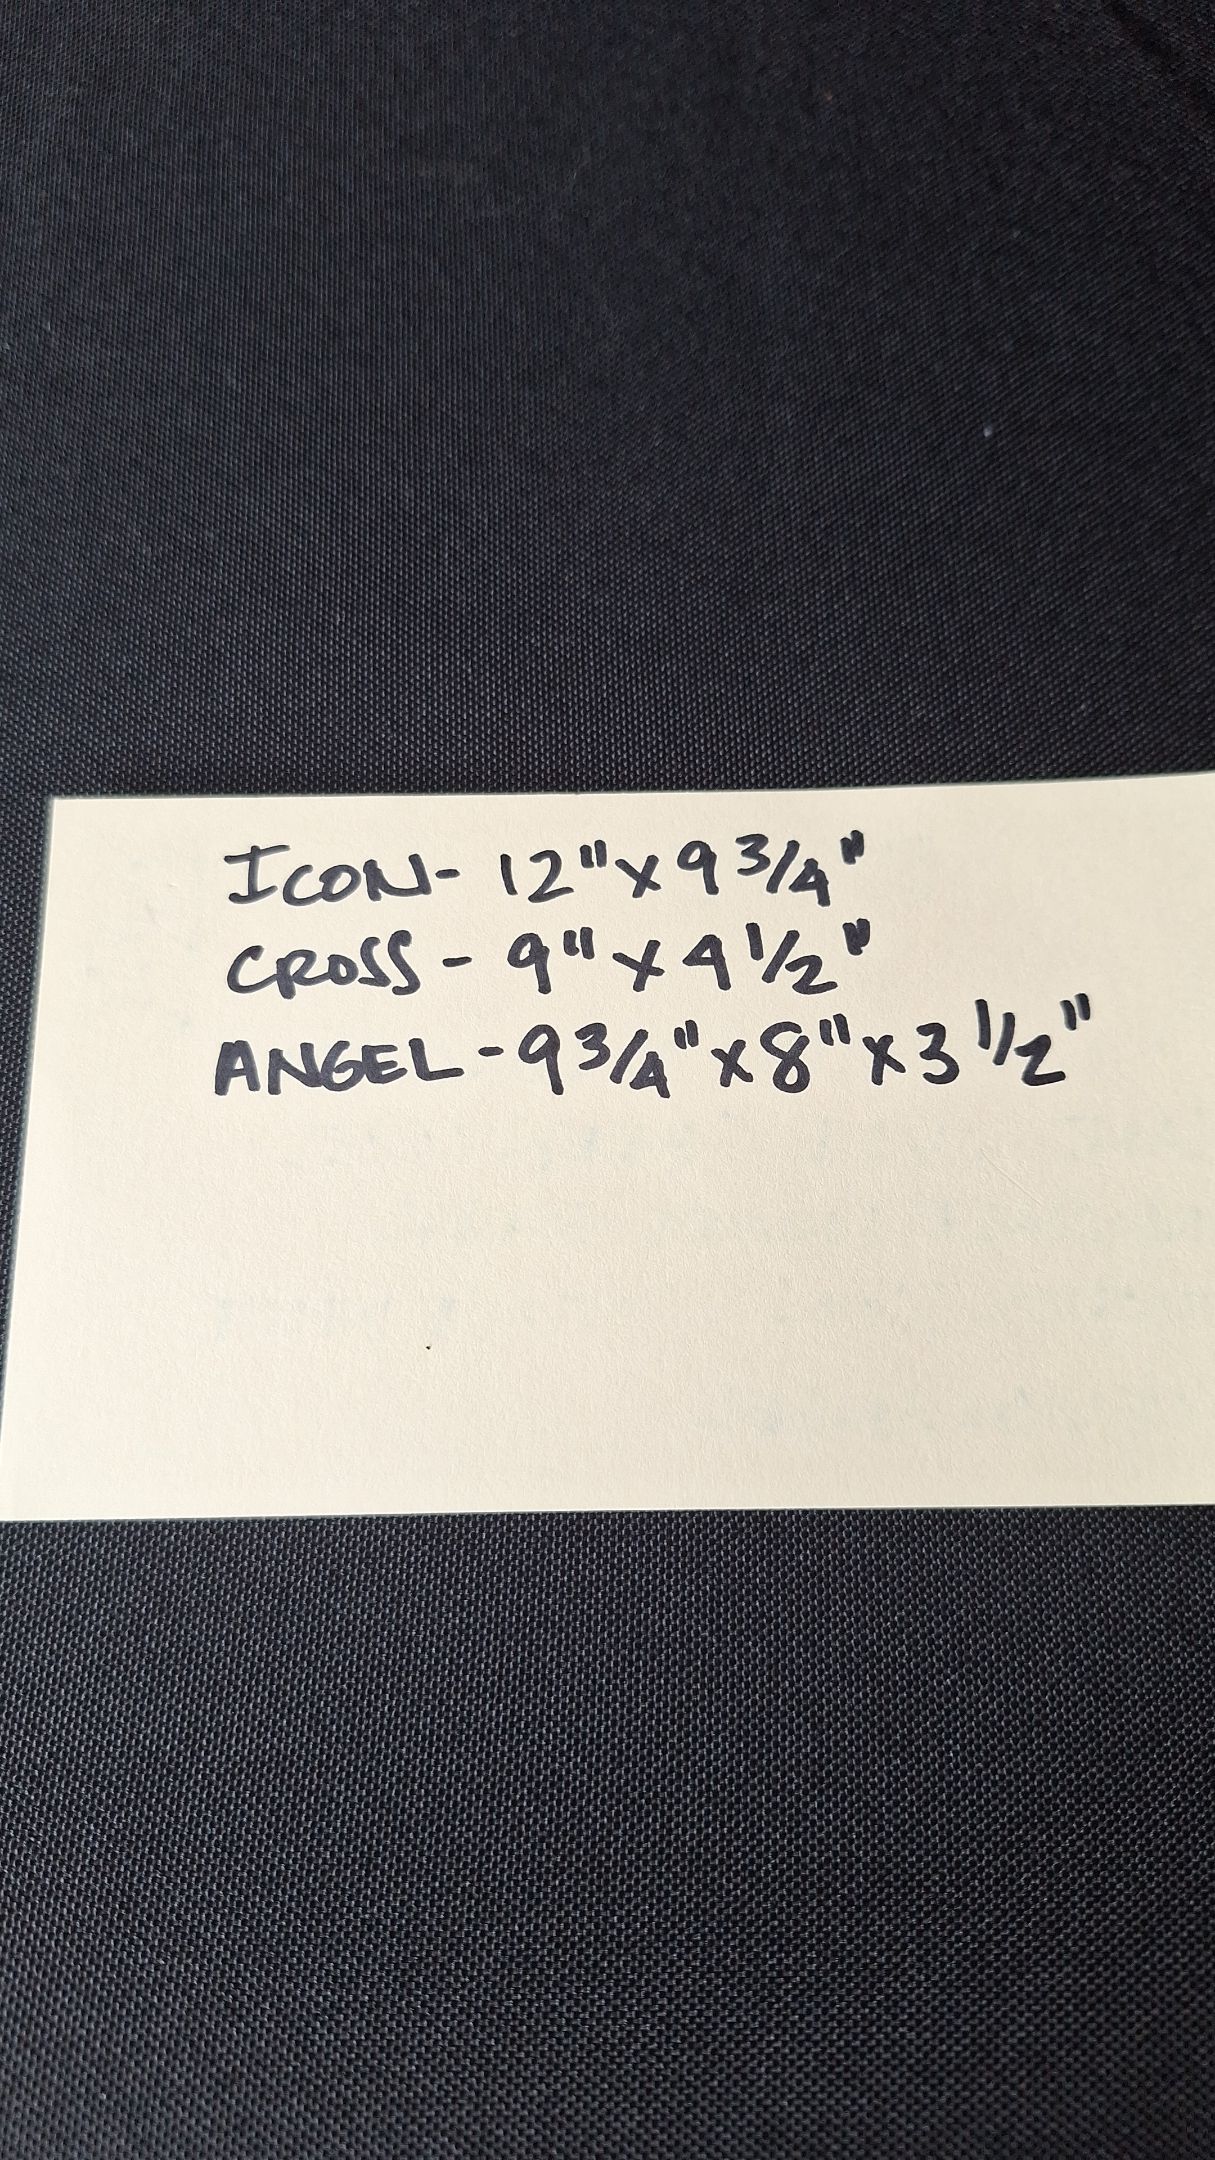 ICON- 12" x 9 3/4"
CROSS - 9" x 4 1/2"
ANGEL - 9 3/4" x 8" x 3 1/2"